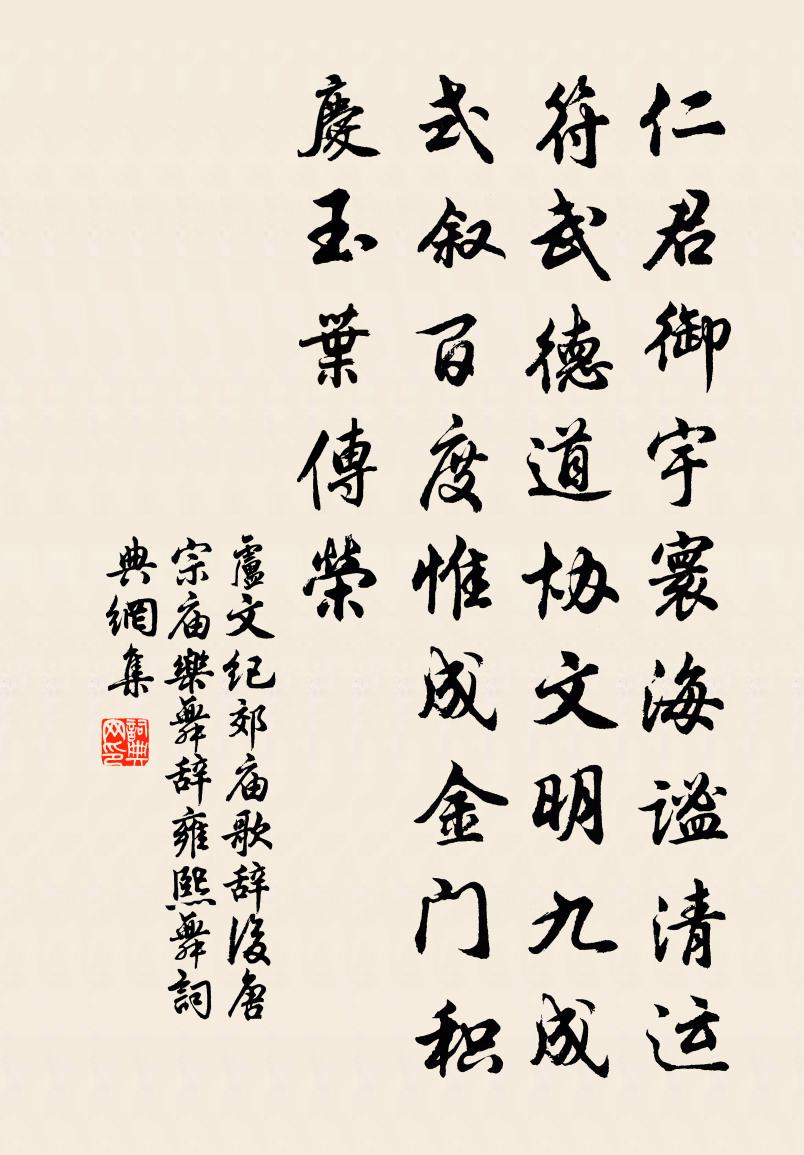 仁君御宇寰海谧清运
符武德道协文明九成
式叙百度惟成金门积
慶玉葉傳榮
盧文纪郊庙歌辞後唐
宗庙樂舞辞雍熙舞詞
典網集
詞典网印